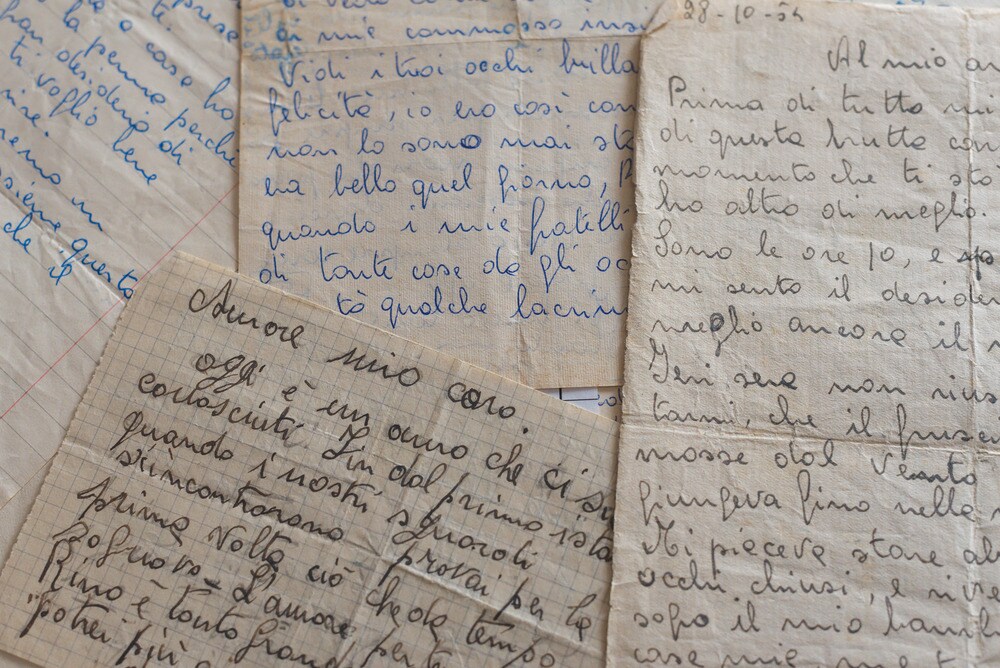 prese
o case ho
la penna perche
gran desiderio di
ti voglio bene
in
assieme questo
che il
di
mi è commosso
Vidi i tuoi occhi brilla
felicità, io ero così con
non lo sono mai sta
era bello quel giorno,
quando i mie fratelli
di tante cose da gli oc
tò qualche lacrim
28-10-54
Al mio a
Prima di tutto mi
di questa brutta con
momento che ti sto
ho altro di meglio.
Sono le ore 10, e
mi sento il desider
meglio ancora il
Ieri sera non rius
tarmi, che il frusc
mosse dal vento
giungeva fino nella
Mi piaceva stare al
occhi chiusi, e rive
sopo il mio bamb
case mie
Amore mio caro.
oggi è un anno che ci si
conosciuti. Fin dal primo ista
quando i nostri sguardi
s'incontrarono provai per la
prima volta ciò che da tempo
sognavo. L'amore, per te
Rino è tanto grand
potrei più